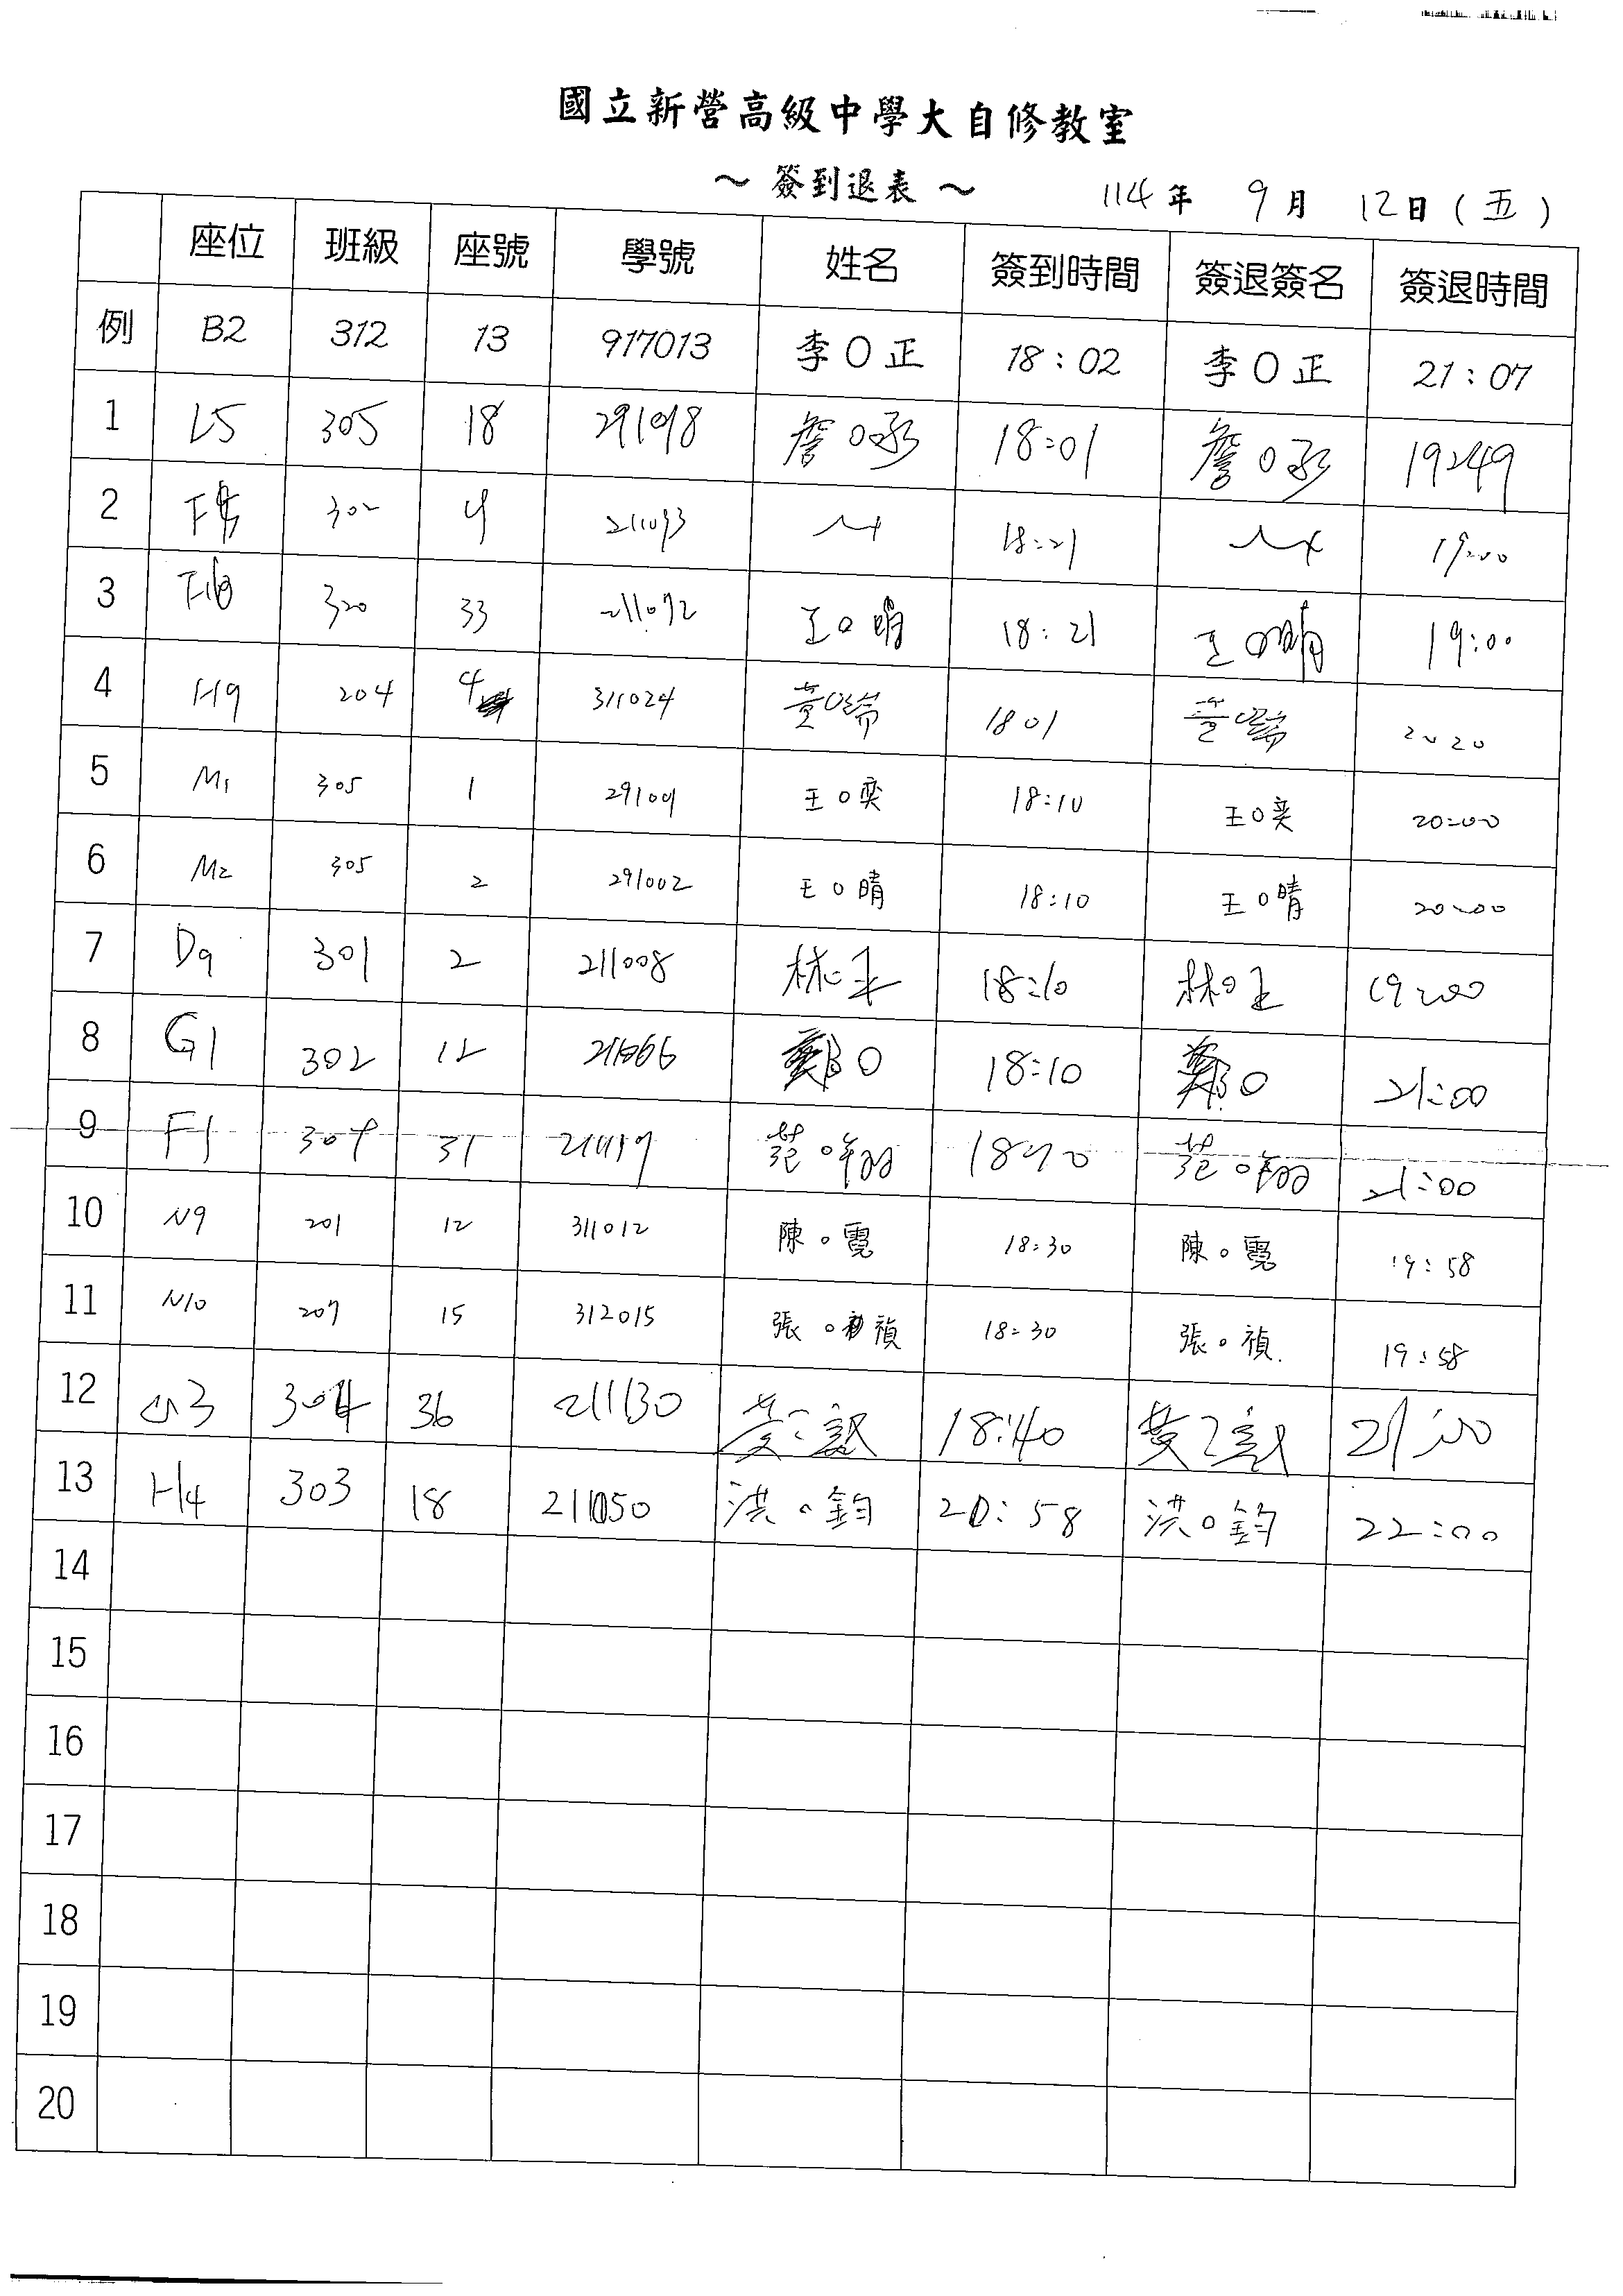 國立新營高級中學大自修教室
～ 簽到退表 ～ 114年 9月 12日(五)
座位 班級 座號 學號 姓名 簽到時間 簽退簽名 簽退時間
例 B2 312 13 917013 李O正 18:02 李O正 21:07
1 L5 305 18 詹O承 18:01 詹O承 19:49
2 302 4 211093 18:21 19:00
3 F10 320 33 211092 王O晴 18:21 王O晴 19:00
4 H9 204 4 311024 黃O瑞 1801 黃O瑞 20 20
5 M1 305 1 291001 王O奕 18:10 王O奕 20:00
6 M2 305 2 291002 王O晴 18:10 王O晴 20:00
7 D9 301 2 211008 18:10 19:00
8 G1 302 12 211066 鄭O 18:10 鄭O 21:00
9 F1 304 31 范O翔 18:10 范O翔 21:00
10 N9 201 12 311012 陳O霓 18:30 陳O霓 19:58
11 N10 207 15 312015 張O禎 18:30 張O禎 19:58
12 304 36 211130 18:40 21:00
13 H4 303 18 211050 洪O鈞 20:58 洪O鈞 22:00
14
15
16
17
18
19
20